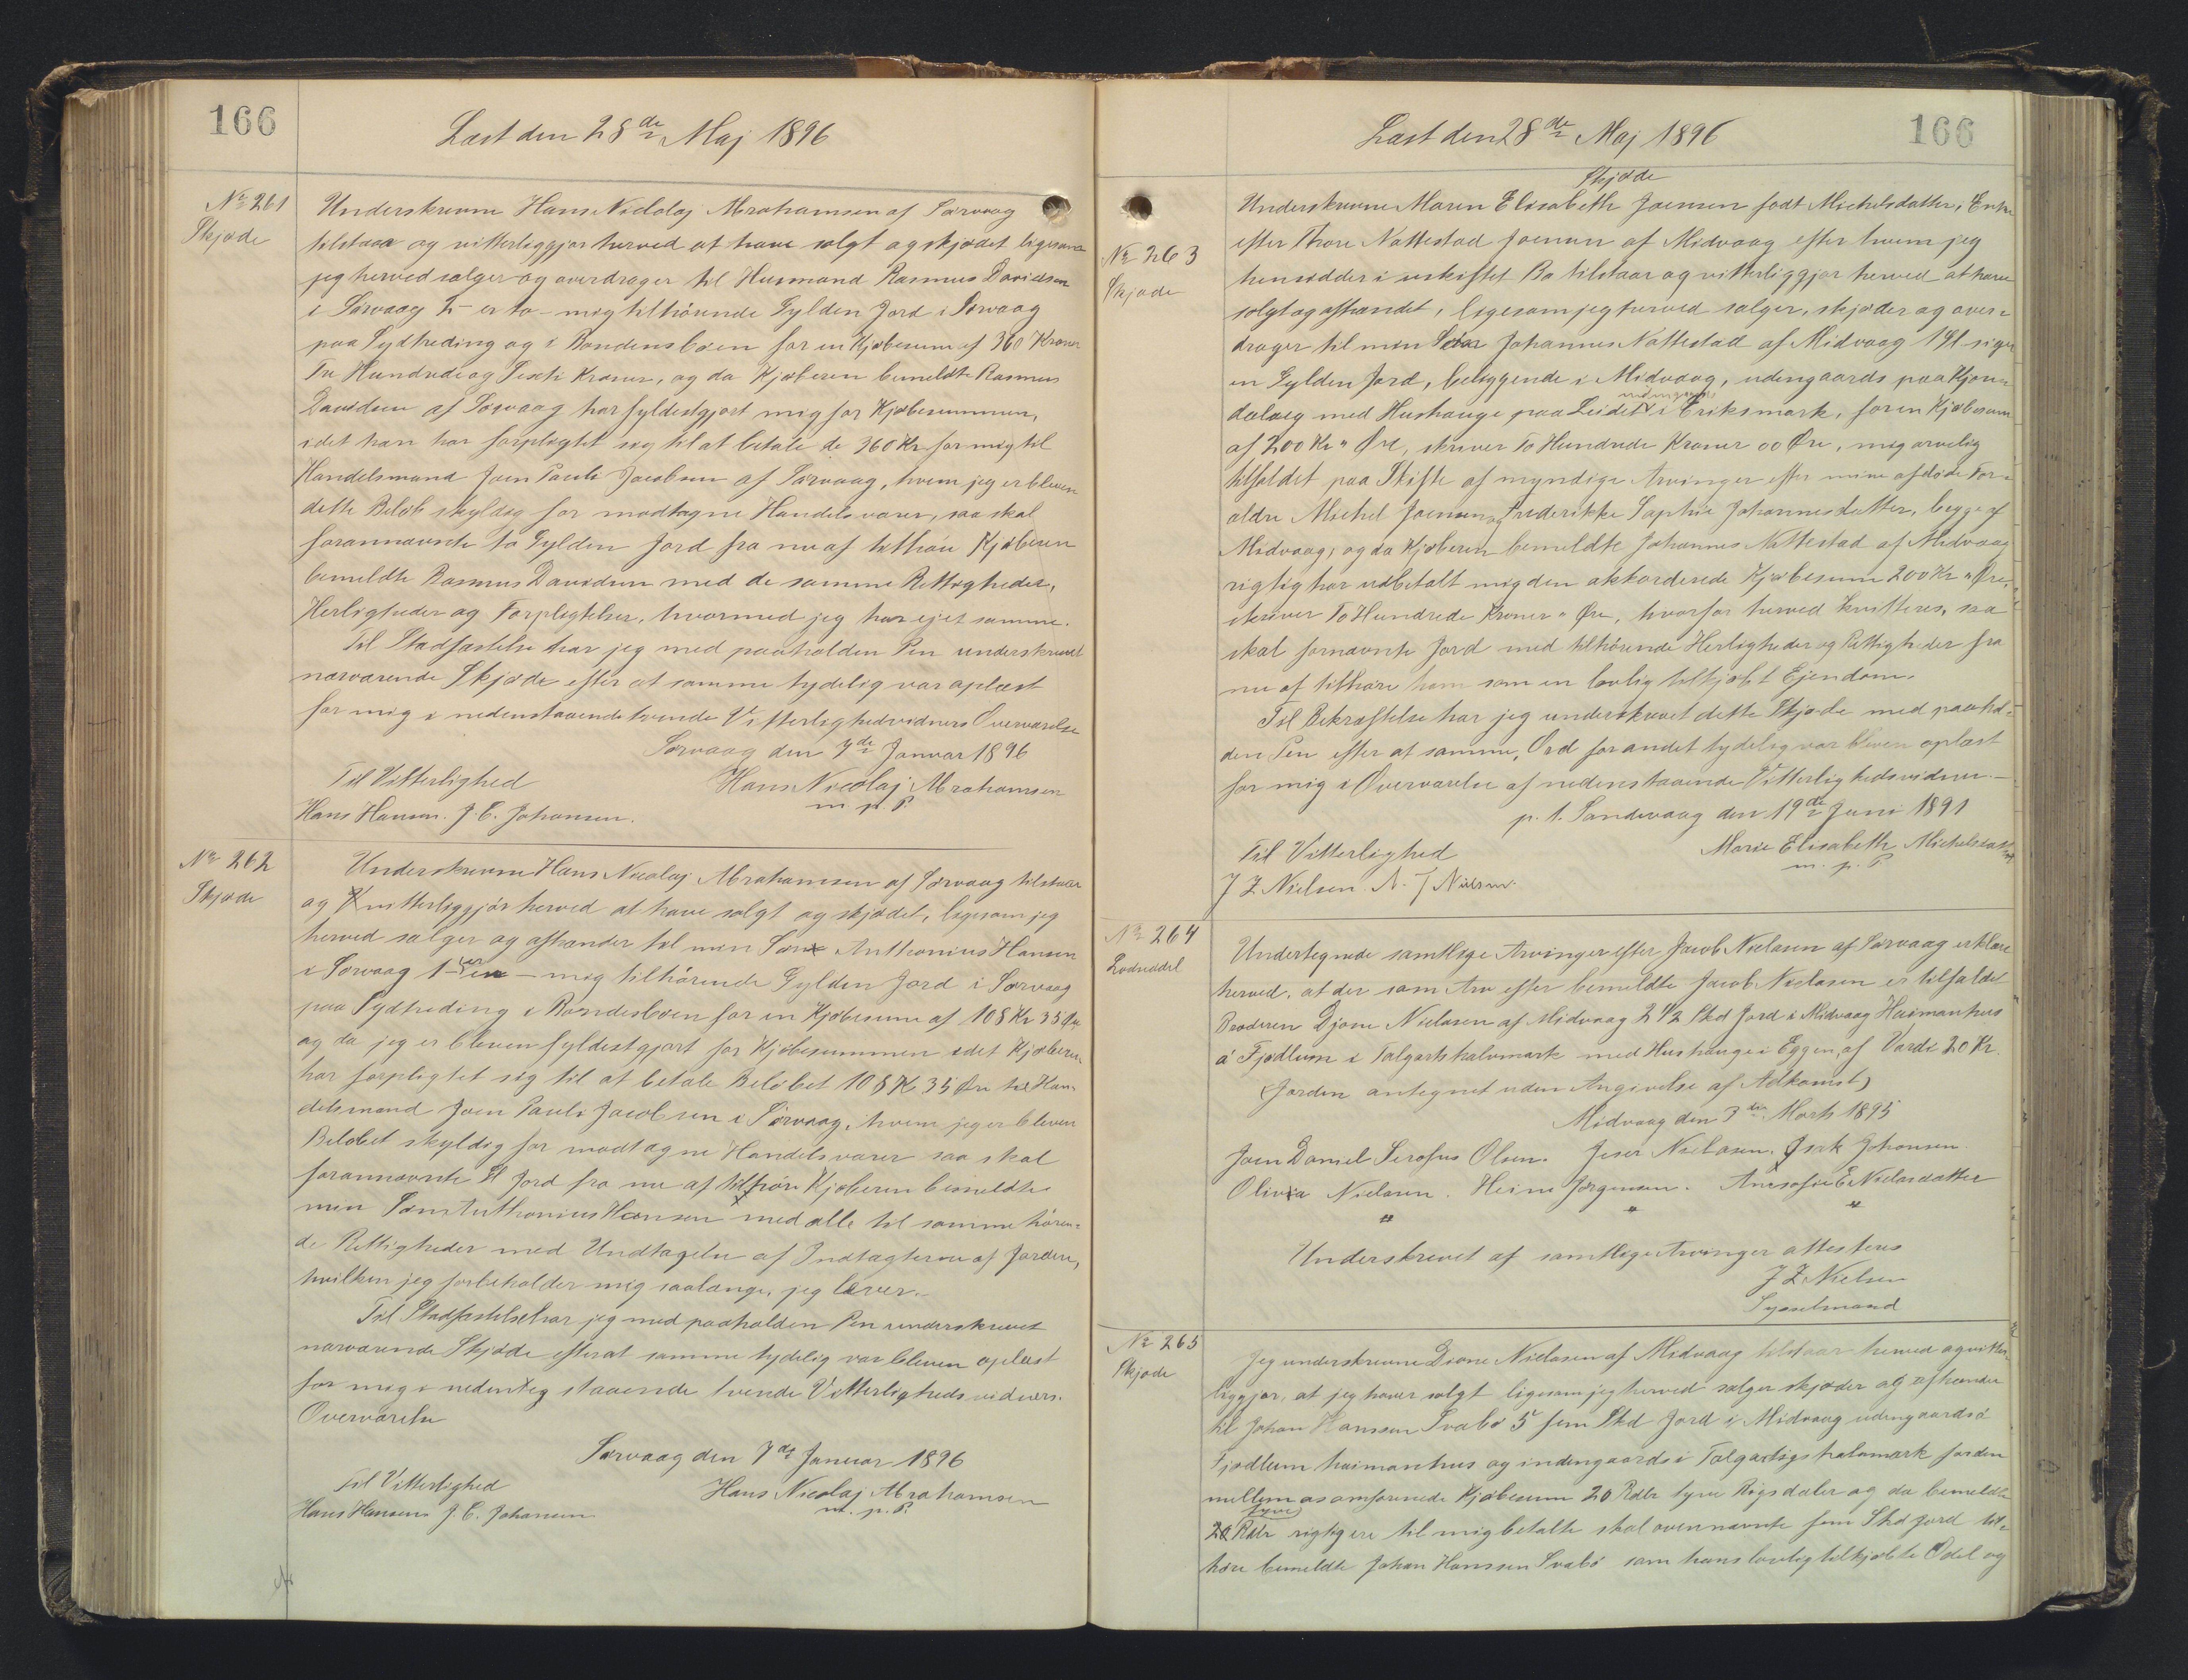 166
Læst den 28de Maj 1896
No 261
Skjøde
Underskrevne Hans Nicolaj Abrahamsen af Sørvaag
tilstaar og vitterliggjør herved at have solgt og skjødet ligesom
jeg herved sælger og overdrager til Husmand Rasmus Davidsen
i Sørvaag 2 - er to - mig tilhörende Gylden Jord i Sørvaag
paa Sydheding og i Bondensbøen for en Kjøbesum af 360 Kroner
Tre Hundrede og Sexti Kroner, og da Kjøberen bemeldte Rasmus
Davidsen af Sørvaag har fyldestgjort mig for Kjøbesummen,
idet han har forpligtet sig til at betale de 360 Kr for mig til
Handelsmand Joen Pauli Jacobsen af Sørvaag, hvem jeg er bleven
dette Beløb skyldig for modtagne Handelsvarer, saa skal
forannævnte to Gylden Jord fra nu af tilhøre Kjøberen
bemeldte Rasmus Davidsen med de samme Rettigheder,
Herligheder og Forpligtelser, hvormed jeg har ejet samme.
Til Stadfæstelse har jeg med paaholden Pen underskrevet
nærværende Skjøde efter at samme tydelig var oplæst
for mig i nedenstaaende tvende Vitterlighedvidners Overværelse
Sørvaag den 7de Januar 1896
Til Vitterlighed
Hans Nicolaj Abrahamsen
m. p. P.
Hans Hansen. J. C. Johansen.
No 262
Skjøde
Underskrevne Hans Nicolaj Abrahamsen af Sørvaag tilstaar
og vitterliggjör herved at have solgt og skjødet, ligesom jeg
herved sælger og afhænder til min Søn Anthonius Hansen
i Sørvaag 1 - er en - mig tilhörende Gylden Jord i Sørvaag
paa Sydheding i Bondesbøen for en Kjøbesum af 108 Kr 35 Øre
og da jeg er bleven fyldestgjort for Kjøbesummen idet Kjøberen
har forpligtet sig til at betale Beløbet 108 K 35 Øre til Han-
delsmand Joen Pauli Jacobsen i Sörvaag, hvem jeg er bleven
Beløbet skyldig for modtagne Handelsvarer saa skal
forannævnte Gl Jord fra nu af tilhøre Kjøberen bemeldte
min Søn Anthonius Hansen med alle til samme høren=
de Rettigheder med Undtagelse af Indtægterne af Jorden,
hvilken jeg forbeholder mig saalænge, jeg lever.-
Til Stadfæstelse har jeg med paaholden Pen underskrevet
nærværende Skjøde efterat samme tydelig var bleven oplæst
for mig i nedenstaaende tvende Vitterlighedsvidners.
Overværelse
Sørvaag den 7de Januar 1896
Til Vitterlighed
Hans Nicolaj Abrahamsen
m. p. P.
Hans Hansen J. C. Johansen
Læst den 28de Maj 1896
166
Skjøde
No 263
Skjøde
Underskrevne Maren Elisabeth Joensen født Michelsdatter, Enke
efter Thore Nattestad Joensen af Midvaag efter hvem jeg
hensidder i uskiftet Bo tilstaar og vitterliggjør herved at have
solgt og afhændet, ligesom jeg herved sælger, skjøder og over=
drager til min Søn Johannes Nattestad af Midvaag 1 Gl - siger
en Gylden Jord, beliggende i Midvaag, udengaards paa Kjon=
dalog med Hushauge paa Leidet i Eriksmørk, for en Kjøbesum
af 200 Kr " Øre, skriver To Hundrede Kroner 00 Øre, mig arvelig
tilfaldet paa Skifte af myndige Arvinger efter mine afdøde For=
ældre Michel Joensen og Frederikke Sophie Johannesdatter, begge af
Midvaag, og da Kjøberen bemeldte Johannes Nattestad af Midvaag
rigtig har udbetalt mig den akkorderede Kjøbesum 200 Kr " Øre,
skriver To Hundrede Kroner " Øre, hvorfor herved kvitteres, saa
skal fornævnte Jord med tilhörende Herligheder og Rettigheder fra
nu af tilhøre ham som en lovlig tilkjøbt Ejendom.
Til Bekræftelse har jeg underskrevet dette Skjøde med paahol-
den Pen efter at samme, Ord for andet tydelig var bleven oplæst
for mig i Overværelse af nedenstaaende Vitterlighedsvidner.-
p. t. Sandevaag den 19de Juni 1891
Til Vitterlighed
Marie Elisabeth Michelsdatter
m. p. P.
J Z Nielsen. N. J Nielsen.
No 264
Lodseddel
Undertegnede samtlige Arvinger efter Jacob Nielasen af Sørvaag erklære
herved, at der som Arv efter bemeldte Jacob Nielasen er tilfaldet
Broderen Djone Nielasen af Midvaag 2 1/2 Skd Jord i Midvaag Haimanhus
á Fjødlum i Talgartshalvmørk med Hushauge i Eggen, af Værdi 20 Kr.
(Jorden antegnet uden Angivelse af Adkomst)
Midvaag den 3die Marts 1895
Joen Daniel Serofus Olsen. Jeser Nielasen. Isak Johansen.
Olivia Nielasen. Heine Jörgensen. Annsofie E. Nielasdatter
" " "
Underskrevet af samtlige Arvinger attesteres
J Z Nielsen
Sysselmand
No 265
Skjøde
Jeg underskrevne Dione Nielasen af Midvaag tilstaar herved og vitter-
liggjør, at jeg haver solgt ligesom jeg herved sælger skjøder og afhænder
til Johan Hanssen Svabø 5 fem Skd Jord i Midvaag udengaards á
Fjødlum haimanhus og indengaards i Talgartshalvmørk for den
mellem os omforenede Kjøbesum 20 Rdlr tyve Rigsdaler og da bemeldte
20 (tyve) Rdlr rigtig ere til mig betalte skal ovennævnte fem Skd Jord til=
høre bemeldte Johan Hanssen Svabö som hans lovlig tilkjøbte Odel og